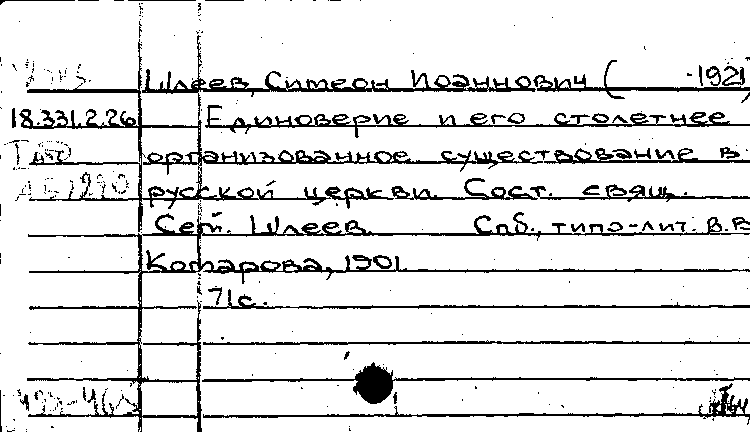 Шлеев, Симеон Иоаннович ( -1921)
18.331.2.26 Единоверие и его столетнее
организованное существование в
русской церкви. Сост. свящ.
Сем. Шлеев. Спб., типо-лит. В.В.
Комарова, 1901.
71с.